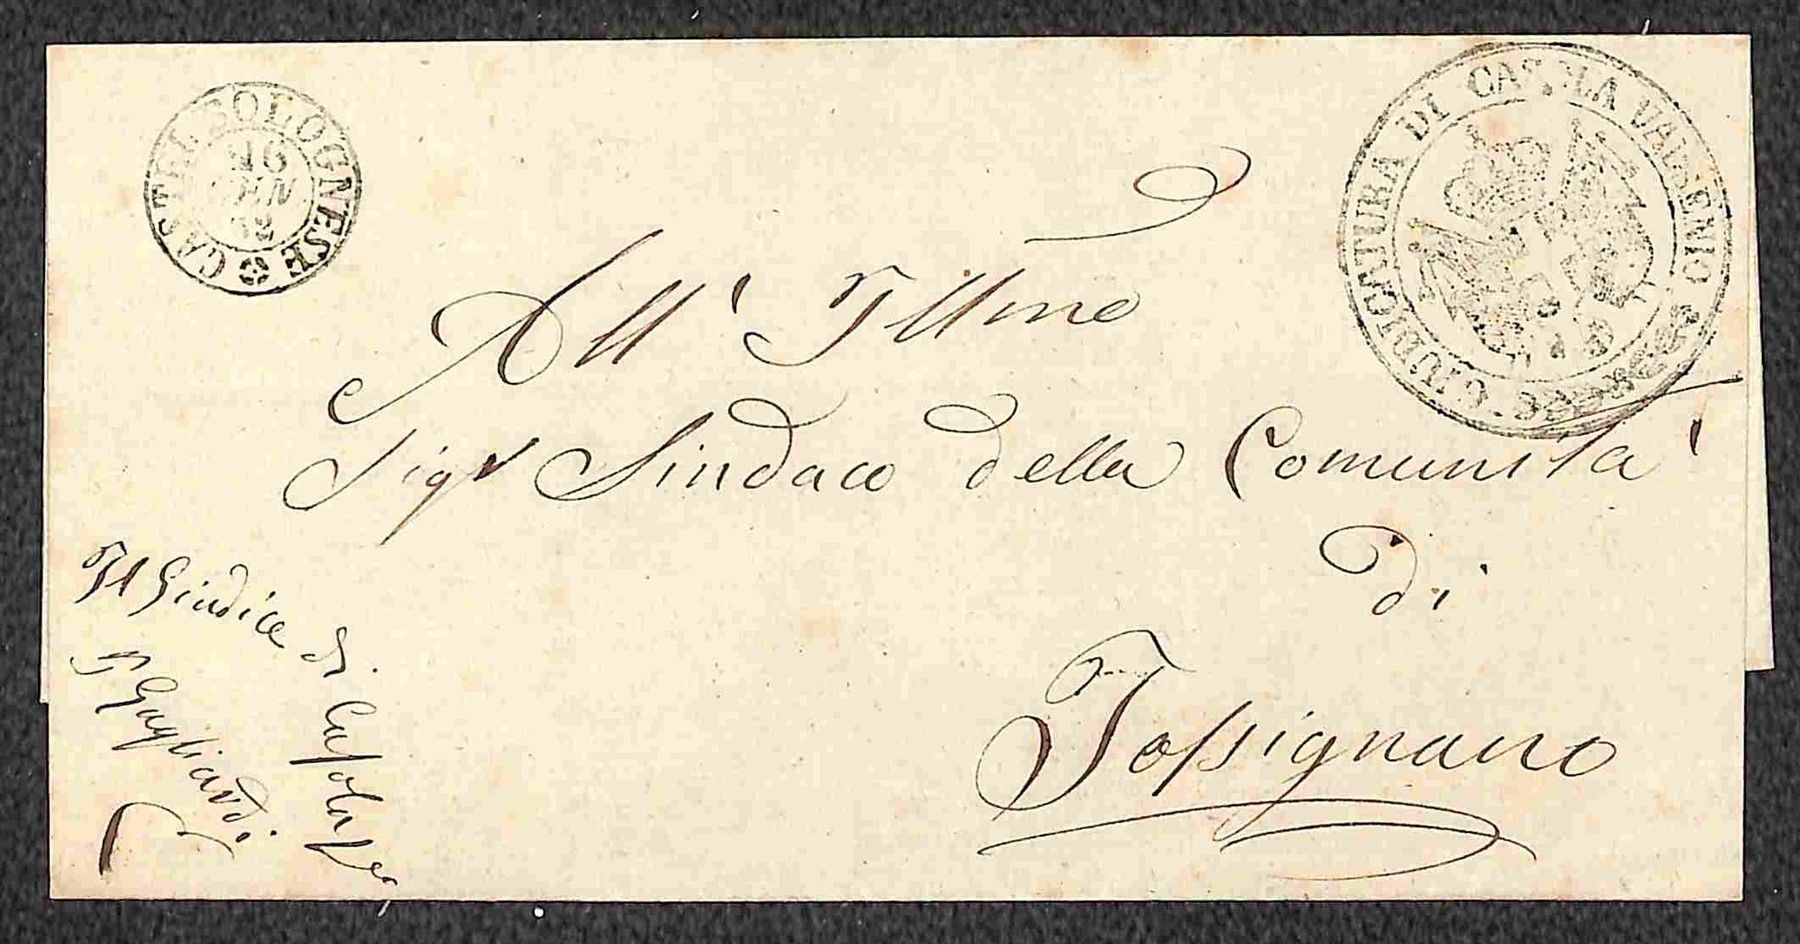 CASTEL BOLOGNESE
16
GEN
62
GIUDICATURA DI CASOLA VALSENIO
All' Illmo
Sigr Sindaco della Comunità
di
Tossignano
Il Giudice di Casola
Gagliardi